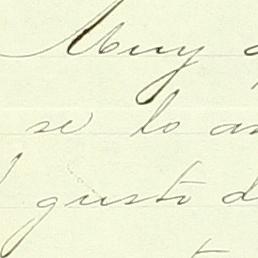 Muy
se lo
gusto d